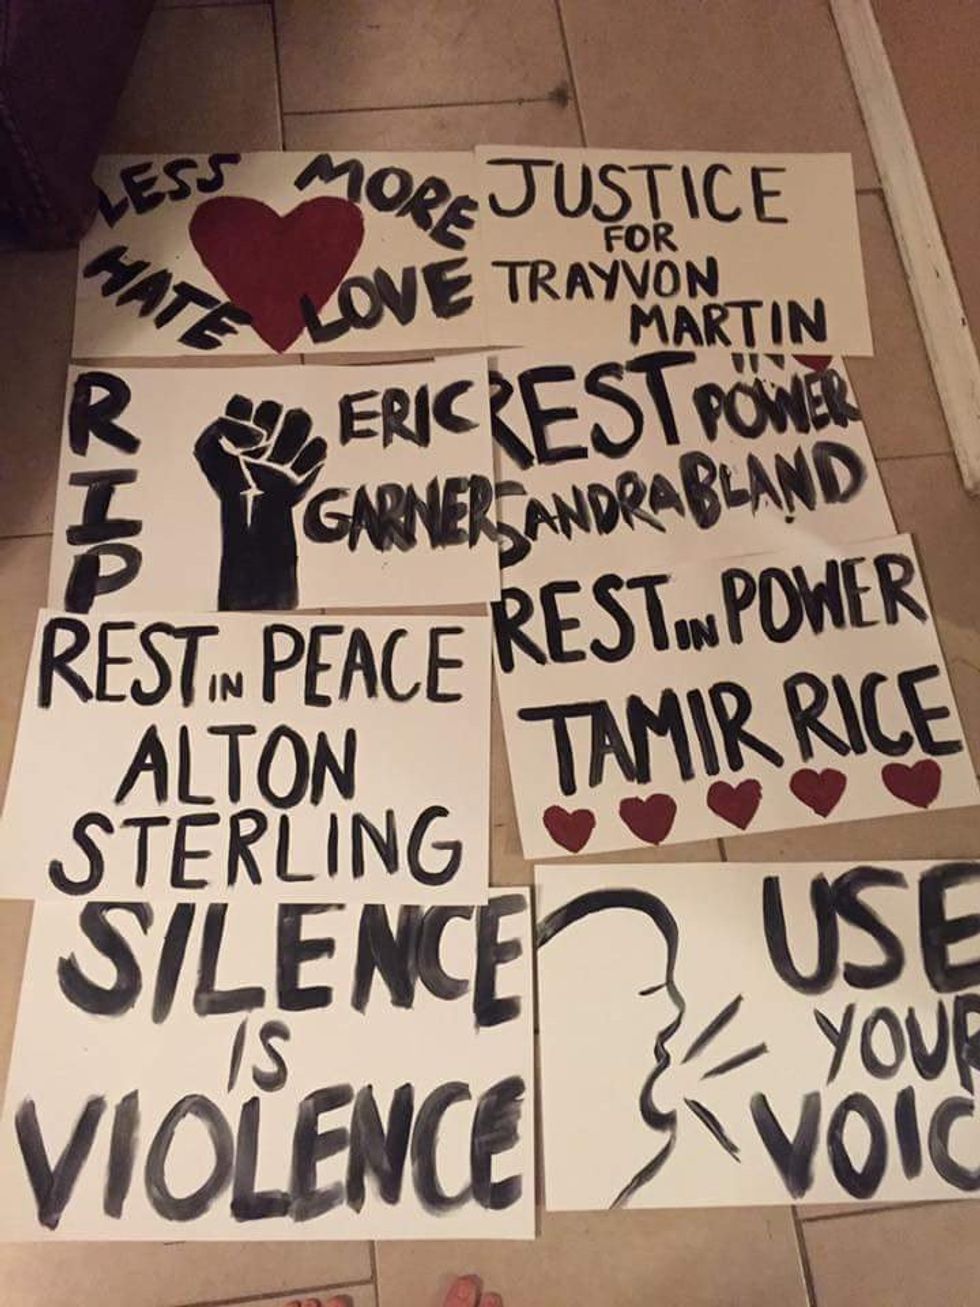 LESS MORE
HATE LOVE
JUSTICE
FOR
TRAYVON
MARTIN
RIP
ERIC
GARNER
REST IN POWER
SANDRA BLAND
REST IN PEACE
ALTON
STERLING
REST IN POWER
TAMIR RICE
SILENCE
IS
VIOLENCE
USE
YOUR
VOIC